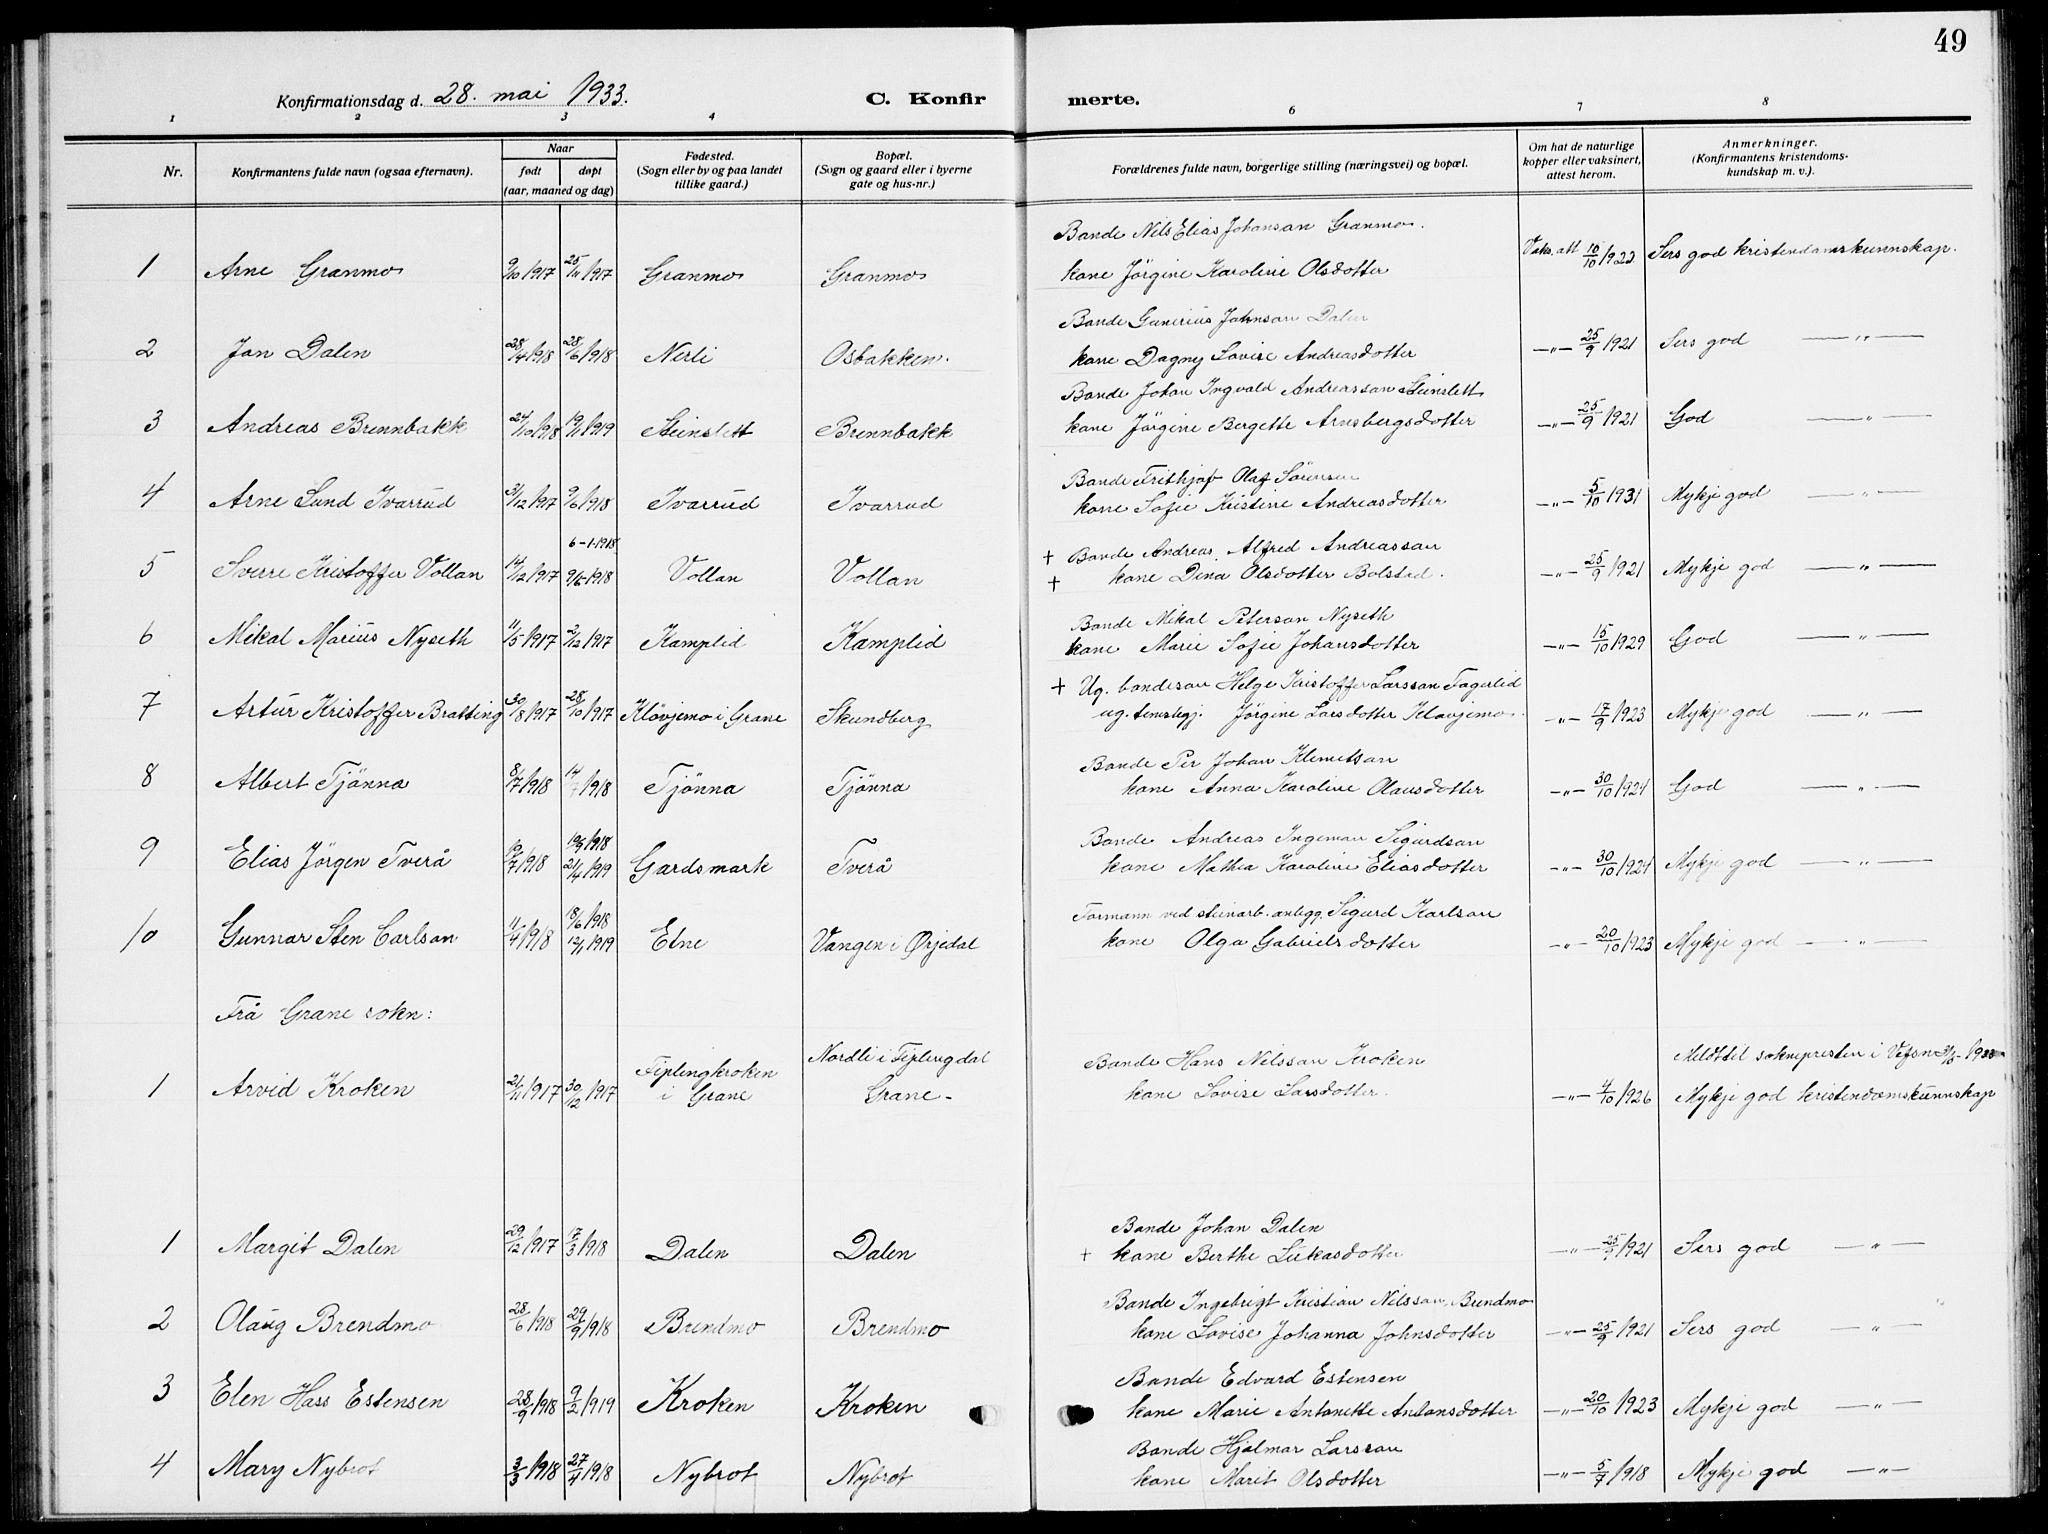 49
Konfirmationsdag d. 28. mai 1933. C. Konfirmerte.
1 2 3 4 6 7 8
Nr. Konfirmantens fulde navn (ogsaa efternavn). Naar født døpt (aar, maaned og dag) Fødested. (Sogn eller by og paa landet tillike gaard.) Bopæl. (Sogn og gaard eller i byerne gate og hus-nr.) Forældrenes fulde navn, borgerlige stilling (næringsvei) og bopæl. Om hat de naturlige kopper eller vaksinert, attest herom. Anmerkninger. (Konfirmantens kristendomskundskap m. v.).
Bonde Nils Elias Johansan Granmo.
1 Arne Granmo 9/10 1917 25/11 1917 Granmo Granmo kone Jörgine Karoline Olsdotter Vaks. att 16/10 1922 Sers god kristendomskunnskap.
Bonde Gunerius Johnsan Dalen
2 Jon Dalen 28/4 1918 28/6 1918 Nerli Osbakken. kone Dagny Lovise Andreasdotter —„— 25/9 1921 Sers god —„—
Bonde Johan Ingvald Andreassan Steinslett
3 Andreas Brennbakk 24/10 1918 19/1 1919 Steinslett Brennbakk kone Jörgine Bergette Arnsbergsdotter —„— 25/9 1921 God —„—
Bonde Frithjof Olaf Sörensen
4 Arne Lund Ivarrud 31/12 1917 9/6 1918 Ivarrud Ivarrud kone Sofie Kristine Andreasdotter —„— 5/10 1931 Mykje god —„—
6-1-1918 + Bonde Andreas Alfred Andreassan
5 Sverre Kristoffer Vollan 14/12 1917 9/6 1918 Vollan Vollan + kone Dina Olsdotter Bolstad. —„— 25/9 1921 Mykje god —„—
Bonde Mikal Petersan Nyseth
6 Mikal Marius Nyseth 11/5 1917 2/12 1917 Kamplid Kamplid kone Marie Sofie Johansdotter —„— 15/10 1929 God —„—
+ Ug. bondeson Helge Kristoffer Larssan Fagerlid
7 Artur Kristoffer Bratting 30/8 1917 28/10 1917 Klövjemo i Grane Skundberg ug. tenestegj. Jörgine Larsdotter Klovjemo. —„— 17/9 1923 Mykje god —„—
Bonde Per Johan Klemetsan
8 Albert Tjönna 8/7 1918 14/7 1918 Tjönna Tjönna kone Anna Karoline Olausdotter —„— 30/10 1924 God —„—
1918 Bonde Andreas Ingeman Sigurdsan
9 Elias Jörgen Tverå 1918 21/4 1919 Gardsmark Tverå kone Mathea Karoline Eliasdotter —„— 30/10 1924 Mykje god —„—
18/6 1918 Formann ved steinarb. anlegg. Sigurd Karlsan
10 Gunnar Sten Carlsan 11/4 1918 12/1 1919 Elne Vangen i Ørjedal kone Olga Gabrielsdotter —„— 20/10 1923 Mykje god —„—
Frå Grane sokn:
Fiplingkroken Nordli i Fiplingdal Bonde Hans Nilssan Kroken Meldt til soknepresten i Vefsn
1 Arvid Kroken 21/11 1917 30/12 1917 i Grane Grane - kone Lovise Larsdotter. —„— 4/10 1926 Mykje god kristendomskunnskap
Bonde Johan Dalen
1 Margit Dalen 29/12 1917 17/3 1918 Dalen Dalen + kone Berthe Lukasdotter —„— 25/9 1921 Sers god —„—
Bonde Ingebrigt Kristian Nilssan, Brendmo
2 Olaug Brendmo 28/6 1918 29/9 1918 Brendmo Brendmo kone Lovise Johanna Johnsdotter —„— 25/9 1921 Sers god —„—
Bonde Edvard Estensen
3 Elen Hass Estensen 28/9 1918 9/2 1919 Kroken Kroken kone Marie Antonette Antonsdotter —„— 20/10 1923 Mykje god —„—
Bonde Hjalmar Larssan
4 Mary Nybrot 3/3 1918 27/4 1918 Nybrot Nybrot kone Marit Olsdotter —„— 5/7 1918 Mykje god —„—